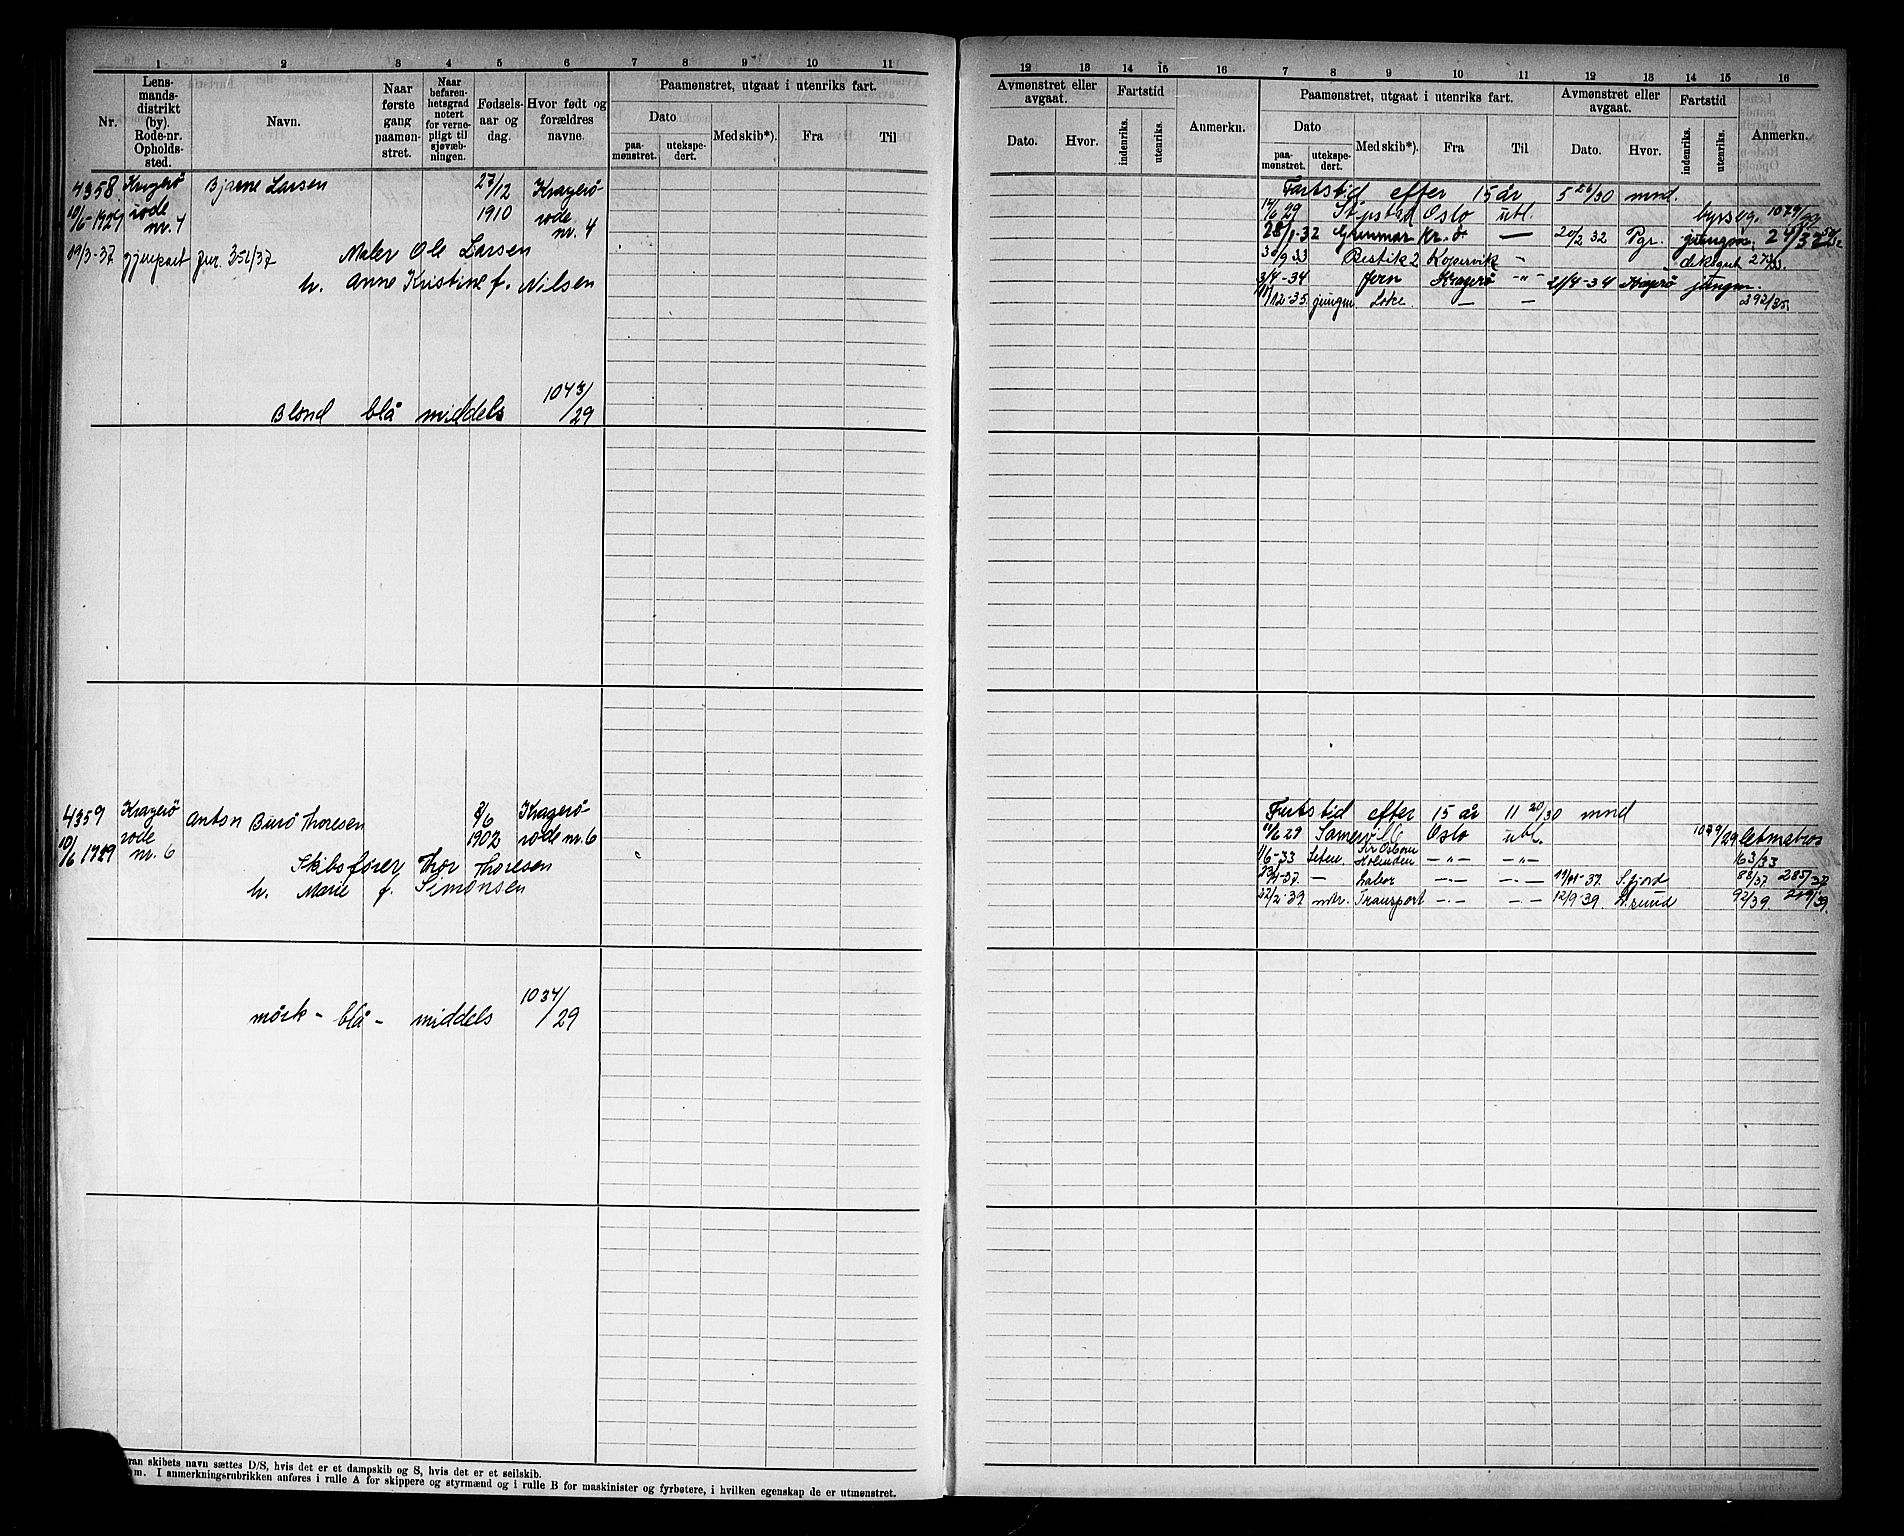 1 2 3 4 5 6 7 8 9 10 11
Nr. Lensmandsdistrikt (by). Rode-nr. Opholdssted. Navn. Naar første gang paamønstret. Naar befarenhetsgrad notert for vernepligt til sjøvæbningen. Fødselsaar og dag. Hvor født og forældres navne. Paamønstret, utgaat i utenriks fart.
Dato Med skib*). Fra Til
paamønstret. utekspedert.
4358 Kragerö Bjarne Larsen 27/12 Kragerö
10/6-1929 rode nr. 4 1910 rode nr. 4
19/3-37 gjenpart jnr. 352/37 Maler Ole Larsen
h. Anne Kristine f. Nilsen
Blond blå middels 1043/29
4359 Kragerö Anton Burö Thoresen 2/6 Kragerö
10/6 1929 rode nr. 6 1902 rode nr. 6
Skibsfører Thor Thoresen
h. Marie f. Simonsen
mörk - blå - middels 1034/29
ran skibets navn sættes D/S, hvis det er et dampskib og S, hvis det er et seilskib.
m. I anmerkningsrubrikken anføres i rulle A for skippere og styrmænd og i rulle B for maskinister og fyrbøtere, i hvilken egenskap de er utmønstret.
12 13 14 15 16 7 8 9 10 11 12 13 14 15 16
Avmønstret eller avgaat. Fartstid Anmerkn. Paamønstret, utgaat i utenriks fart. Avmønstret eller avgaat. Fartstid Anmerkn.
Dato. Hvor. indenriks. utenriks. Dato Med skib*). Fra Til Dato. Hvor. indenriks. utenriks.
paamønstret. utekspedert.
Fartstid efter 15 år 5 26/30 mnd.
14/6 29 Oslo utl. byrseg. 1079/29
28/1-32 Gunmar Kr. ö — 20/2 32 Pgr. jungm. 24/32
30/9 33 Restik 2 Kopervik - deksgut
3/4-34 Jern Kragerö -"- 21/4-34 Kragerö jungm.
11/12-35 jungm Loke. — — 292/35.
Fartstid efter 15 år 11 20/30 mnd
11/6 29 Somerville Oslo utl. 1079/29 letmatros
1/6-33 Sir Osborn Holmden -"- -"- 163/33
-37. — Labor -·- -·- 19/11-37. Sfjord 88/37. 285/37
22/2-39 mtr. Transport -·- -·- 12/9-39. H.sund 92/39. 219/39.